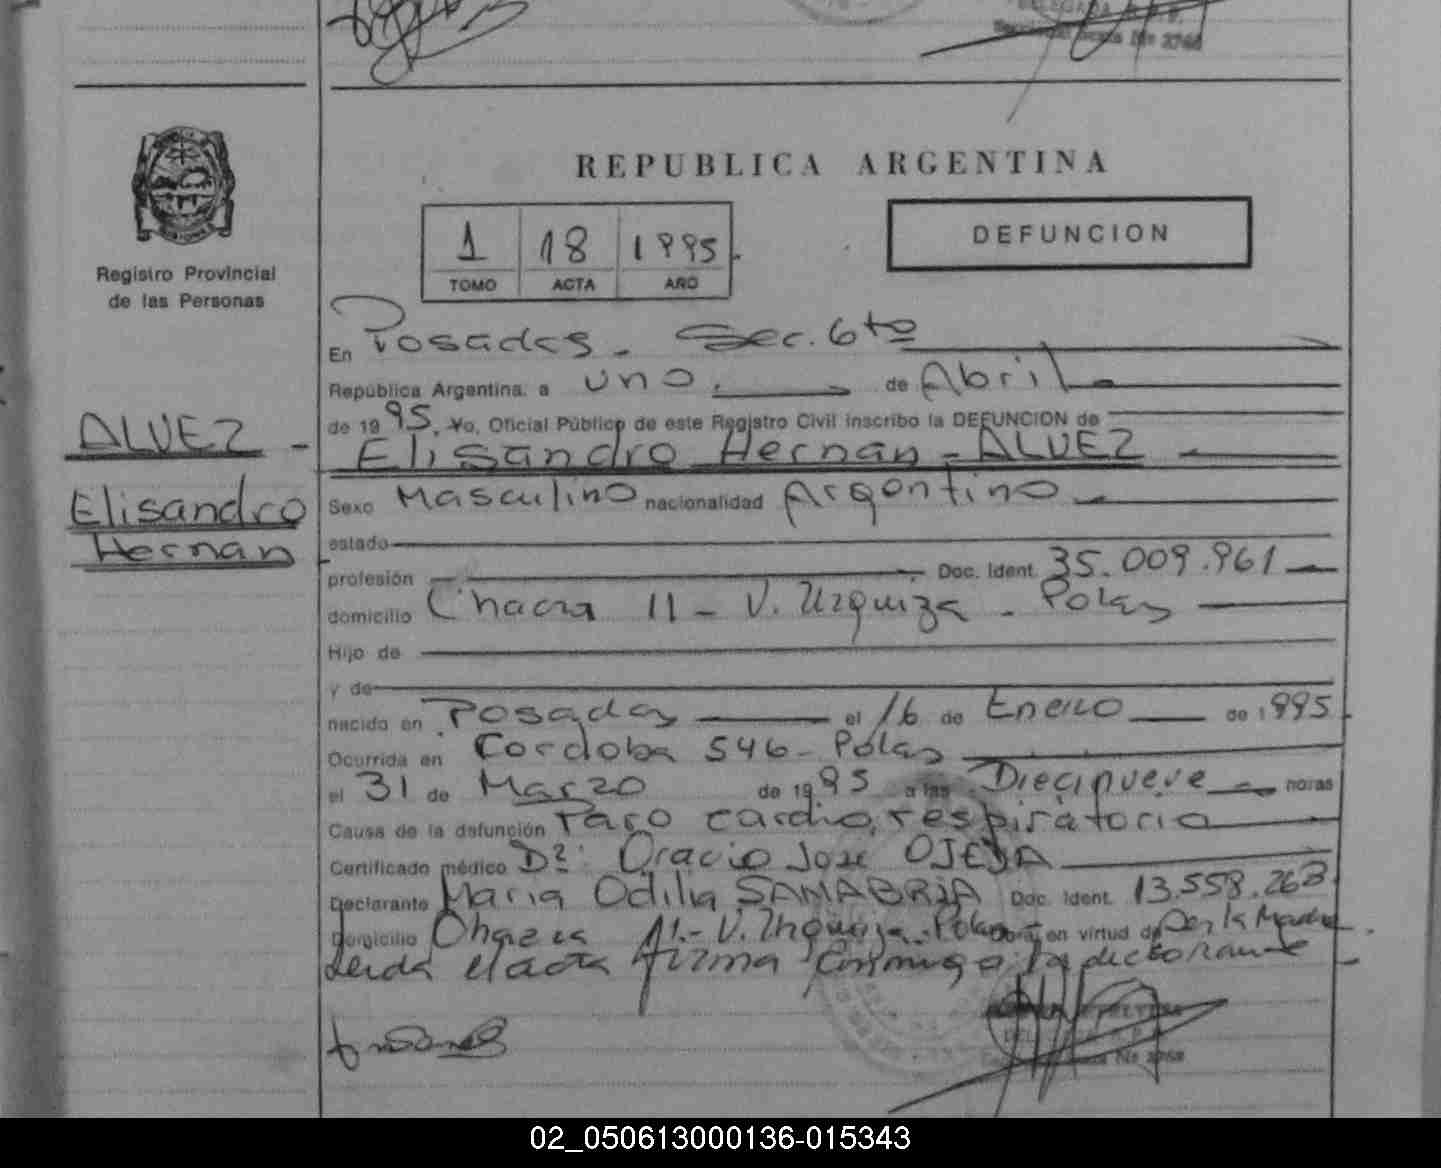 Sec 6ta Nº 3768
REPUBLICA ARGENTINA
1 18 1995
TOMO ACTA AÑO
DEFUNCION
Registro Provincial
de las Personas
ALVEZ -
Elisandro
Hernan
En Posadas - Sec. 6to
República Argentina, a uno de Abril
de 1995, Yo, Oficial Público de este Registro Civil inscribo la DEFUNCION de
Elisandro Hernan - ALVEZ
Sexo Masculino nacionalidad Argentino
estado
profesión Doc. Ident. 35.009.961
domicilio Chacra 11 - V. Urquiza - Pdas
Hijo de
y de
nacido en Posadas el 16 de Enero de 1995
Ocurrida en Cordoba 546 - Pdas
el 31 de Marzo de 1995 a las Diecinueve horas
Causa de la defunción Paro cardio respiratorio
Certificado médico Dr: Oracio Jose OJEDA
Declarante Maria Odilia SAMABRIA Doc. Ident. 13.558.263
Domicilio Chacra 11.- V. Urquiza - Pdas Obra en virtud de Ser la Madre
Leida el acta firma conmigo la declarante
02_050613000136-015343